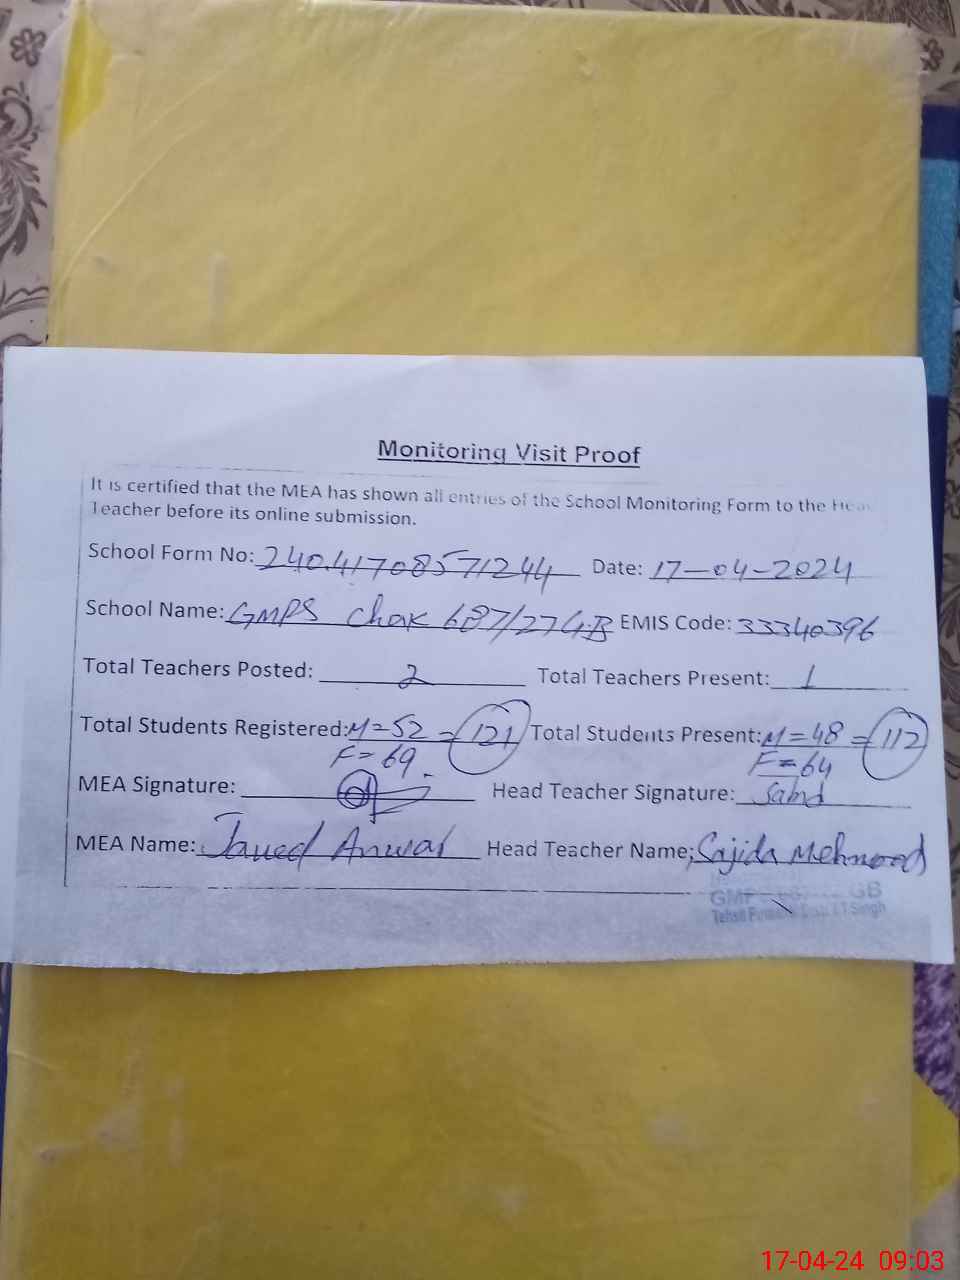 Monitoring Visit Proof
It is certified that the MEA has shown all entries of the School Monitoring Form to the Head
Teacher before its online submission.
School Form No: 24041708571244 Date: 17-04-2024
School Name: GMPS Chak 687/27G.B EMIS Code: 33340396
Total Teachers Posted: 2 Total Teachers Present: 1
Total Students Registered: M=52 =121 Total Students Present: M=48 =112
F=69 F=64
MEA Signature: Head Teacher Signature:
MEA Name: Javed Anwar Head Teacher Name: Sajida Mehmood
GB
Tehsil T.T.Singh
17-04-24 09:03